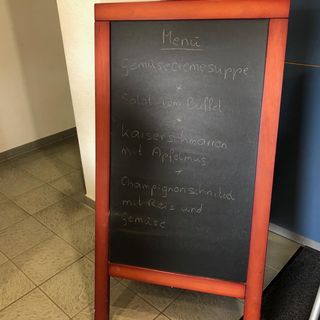 Menü
Gemüsecremesuppe
*
Salat vom Buffet
*
Kaiserschmarren
mit Apfelmus
*
Champignonschnitzel
mit Reis und
Gemüse